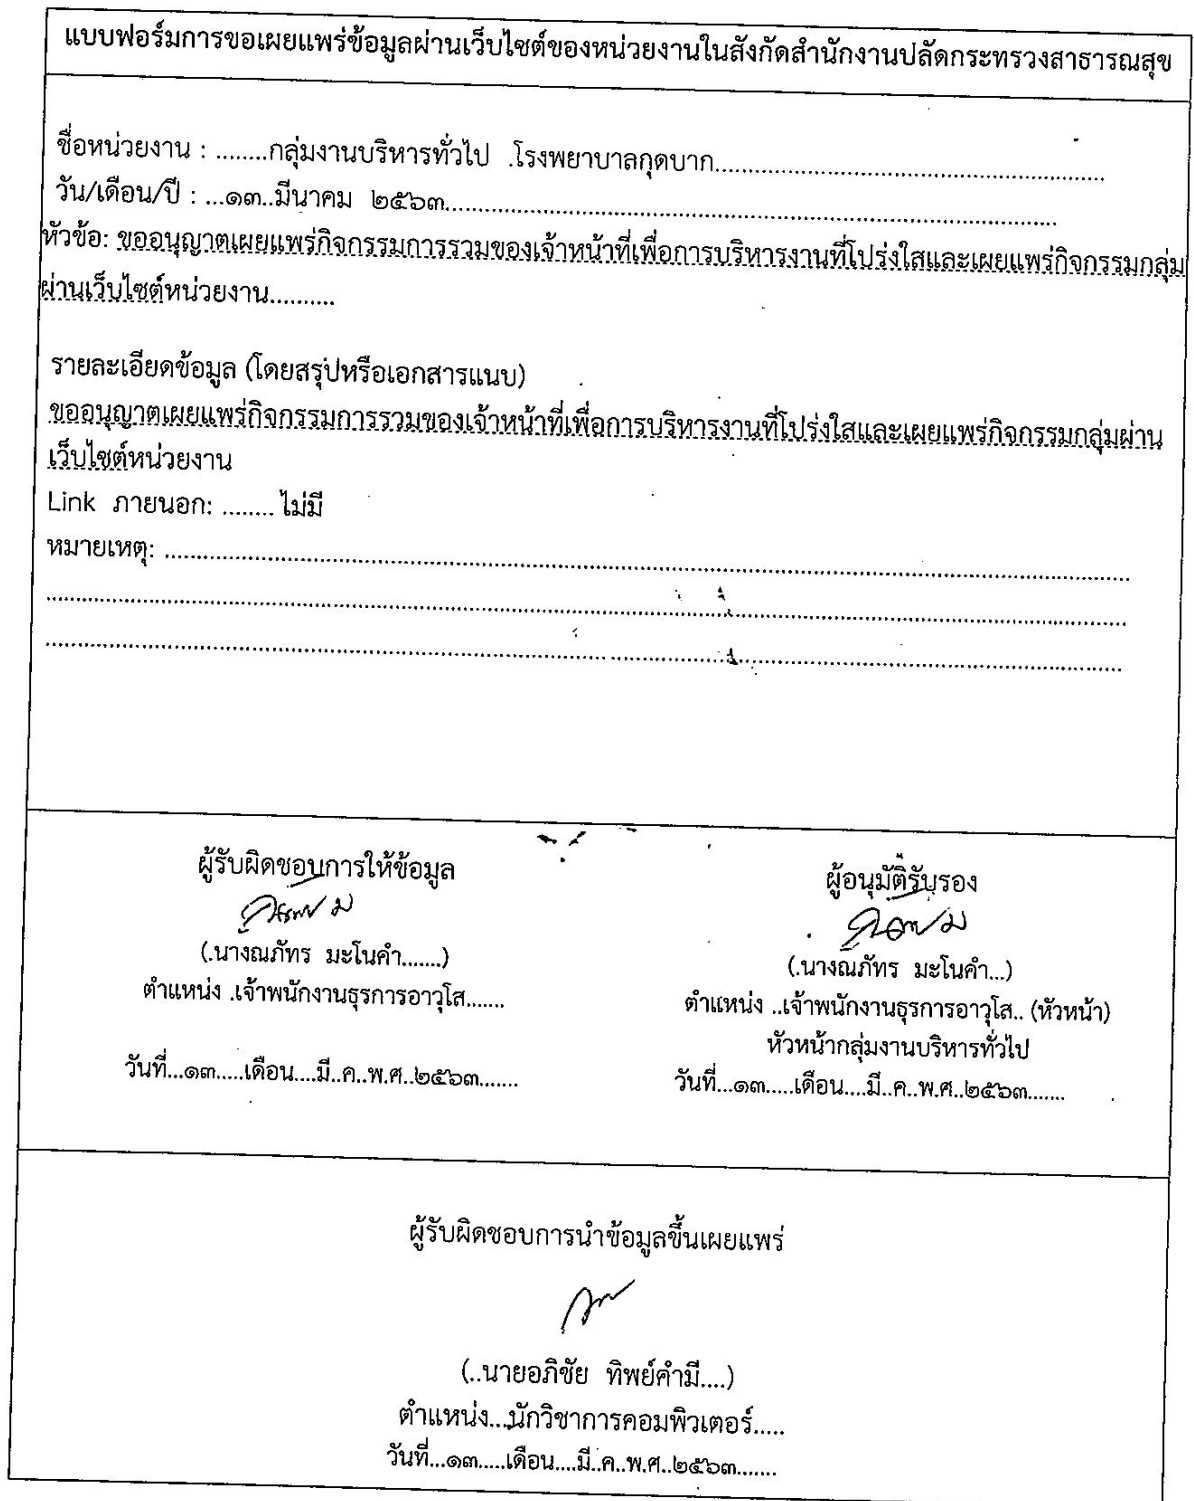 แบบฟอร์มการขอเผยแพร่ข้อมูลผ่านเว็บไซต์ของหน่วยงานในสังกัดสำนักงานปลัดกระทรวงสาธารณสุข
ชื่อหน่วยงาน : ........กลุ่มงานบริหารทั่วไป .โรงพยาบาลกุดบาก..............................
วัน/เดือน/ปี : ...๑๓..มีนาคม ๒๕๖๓..............................
หัวข้อ: ขออนุญาตเผยแพร่กิจกรรมการรวมของเจ้าหน้าที่เพื่อการบริหารงานที่โปร่งใสและเผยแพร่กิจกรรมกลุ่ม
ผ่านเว็บไซต์หน่วยงาน..........
รายละเอียดข้อมูล (โดยสรุปหรือเอกสารแนบ)
ขออนุญาตเผยแพร่กิจกรรมการรวมของเจ้าหน้าที่เพื่อการบริหารงานที่โปร่งใสและเผยแพร่กิจกรรมกลุ่มผ่าน
เว็บไซต์หน่วยงาน
Link ภายนอก: ........ ไม่มี
หมายเหตุ: ..............................
ผู้รับผิดชอบการให้ข้อมูล
(.นางณภัทร มะโนคำ.......)
ตำแหน่ง .เจ้าพนักงานธุรการอาวุโส.......
วันที่...๑๓.....เดือน....มี..ค..พ.ศ..๒๕๖๓.......
ผู้อนุมัติรับรอง
(.นางณภัทร มะโนคำ...)
ตำแหน่ง ..เจ้าพนักงานธุรการอาวุโส.. (หัวหน้า)
หัวหน้ากลุ่มงานบริหารทั่วไป
วันที่...๑๓.....เดือน....มี..ค..พ.ศ..๒๕๖๓.......
ผู้รับผิดชอบการนำข้อมูลขึ้นเผยแพร่
(..นายอภิชัย ทิพย์คำมี....)
ตำแหน่ง...นักวิชาการคอมพิวเตอร์.....
วันที่...๑๓.....เดือน....มี..ค..พ.ศ..๒๕๖๓.......